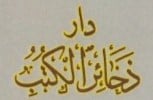 دار
ذَخَائِرُ الكُتُبُ